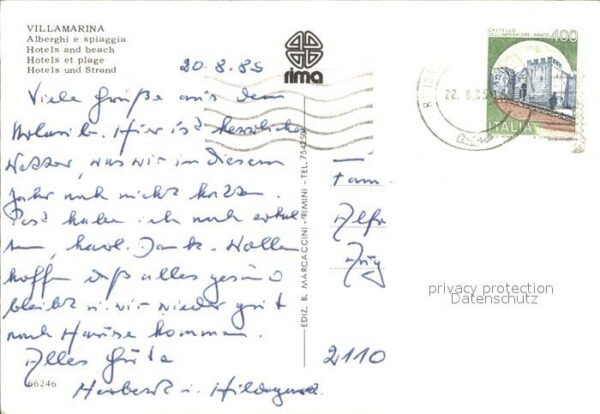 VILLAMARINA
Alberghi e spiaggia
Hotels and beach
Hotels et plage
Hotels und Strand
rima
20.8.85
Viele Grüße aus dem
Urlaub. Hier ist herrliches
Wetter, was wir in diesem
Jahr noch nicht hatten.
Post habe ich noch erhal-
ten, herzl. Dank. Wollen
hoffen daß alles gesund
bleibt u. wir wieder gut
nach Hause kommen.
Alles Gute
Herbert u. Hildegard
66246
EDIZ. B. MARCACCINI - RIMINI - TEL. 754250
CASTELLO
DELL'IMPERATORE - PRATO
400
ITALIA
22.8.85
Fam.
Alfr
2110
privacy protection
Datenschutz